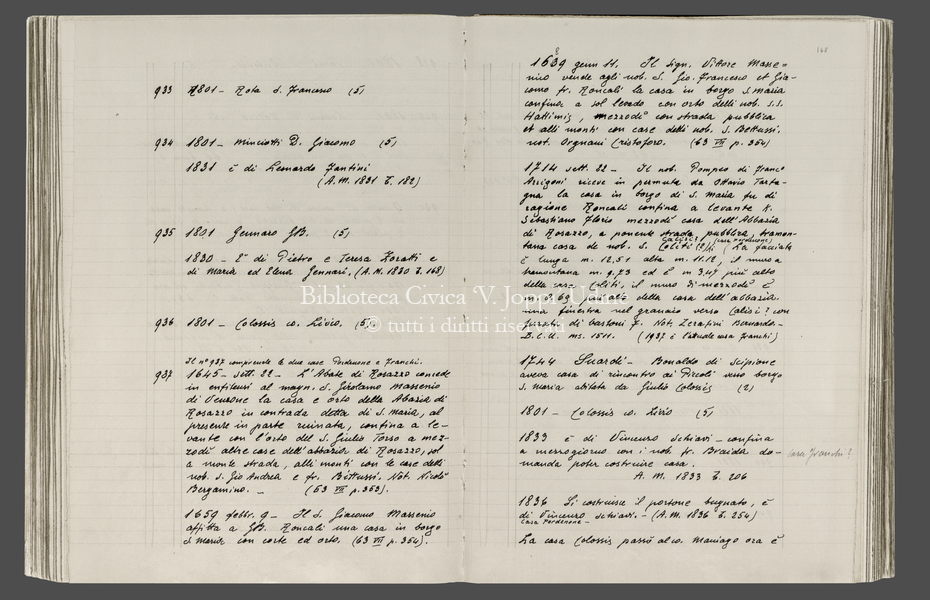 933 1801 - Rota S. Francesco (5)
934 1801 - Minciotti D. Giacomo (5)
1831 è di Leonardo Fantini
(A.M. 1831 T. 182)
935 1801 Gennaro GB. (5)
1830 - È di Pietro e Teresa Foratti e
di Maria ed Elena Gennari, (A.M. 1830 T. 168)
936 1801 - Colossis co. Livio. (5)
Il n° 937 comprende le due case Pordenone e Franchi.
937 1645 - sett. 22 - L'Abate di Rosazzo concede
in enfiteusi al magn. S. Girolamo Massenio
di Venzone la casa e orto della Abazia di
Rosazzo in contrada detta di S. Maria, al
presente in parte ruinata, confina a le=
vante con l'orto del S. Giulio Torso a mez=
zodì altre case dell'abbazia di Rosazzo, sol
a monte strada, alli monti con le case delli
nob. S. Gio Andrea e fr. Bettussi. Not. Nicolò
Bergamino. - (63 VII p. 353).
1659 febbr. 9 - Il S. Giacomo Massenio
affitta a GB. Roncali una casa in borgo
S Maria con corte ed orto. (63 VII p. 354).
168
8
1639 genn 11. Il sign. Vittore Masse=
nico vende agli nob. S. Gio. Francesco et Gia=
como fr. Roncali la casa in borgo S. Maria
confina a sol levado con orto delli nob. S.S.
Hattimis, mezzodì con strada pubblica
et alli monti con case delli nob. S. Bettussi.
not. Orgnani Cristoforo. (63 VII p. 354)
1714 sett. 22 - Il nob. Pompeo di Franc°
Arrigoni riceve in permuta da Ottavio Tarta=
gna la casa in borgo di S. Maria fu di
ragione Roncali confina a levante K.
Sebastiano Florio mezzodì casa dell'Abbazia
di Rosazzo, a ponente strada pubblica, tramon=
Calisi? (casa Pordenone)
tana casa de nob. S. Coliti (?) (La facciata
è lunga m. 12,51 alta m. 11,12, il muro a
tramontana m. 9,73 ed è m 3,47 più alto
della casa Coliti, il muro di mezzodì è
m 0,69 più alto della casa dell'abbazia.
una finestra nel granaio verso Calisi? con
ferrata di bastoni f. Not. Zerafini Bernardo-
B.C.U. ms. 1511. (1937 è l'attuale casa Franchi)
1744 Suardi - Bonaldo di Scipione
aveva casa di rincontro ai Piccoli verso borgo
S. Maria abitata da Giulio Colossis (2)
1801 - Colossis co. Livio (5)
1833 è di Vincenzo Schiavi - confina
a mezzogiorno con i nob. fr. Braida do=
manda poter costruire casa.
A.M. 1833 T. 206
casa Franchi?
1836 Si costruisce il portone bugnato, è
di Vincenzo Schiavi. - (A.M. 1836 T. 254)
Casa Pordenone -
La casa Colossis passò al co. Maniago ora è
Biblioteca Civica 'V. Joppi' Udine
© tutti i diritti riservati